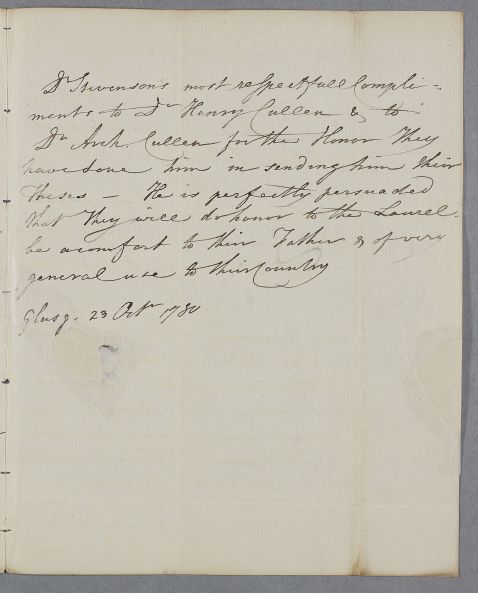 Dr Stevenson's most respectfull Compli-
ments to Dr Henry Cullen & to
Dr Arch. Cullen for the Honor They
have done him in sending him their
Theses – He is perfectly persuaded
that They will do honor to the Laurel,
be a comfort to their Father & of very
general use to their Country
Glasg. 23 Octr 1780